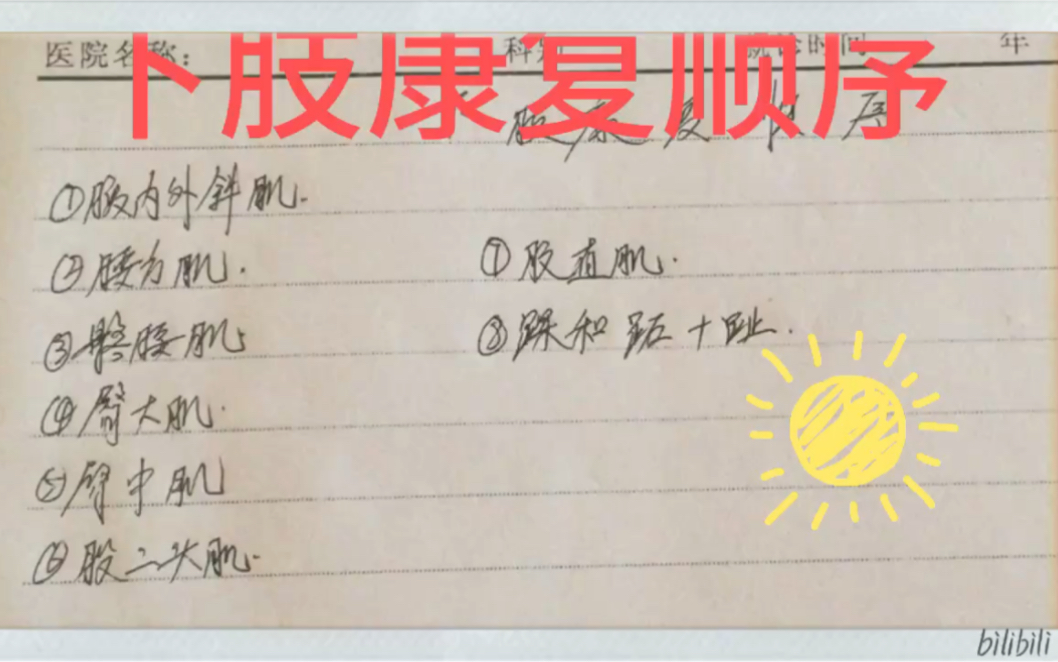 医院名称： 科别 就诊时间 年
下肢康复顺序
肢康复顺序
①腹内外斜肌.
②腰方肌.
③髂腰肌.
④臀大肌.
⑤臀中肌
⑥股二头肌.
⑦股直肌.
⑧踝和跖+趾.
bilibili